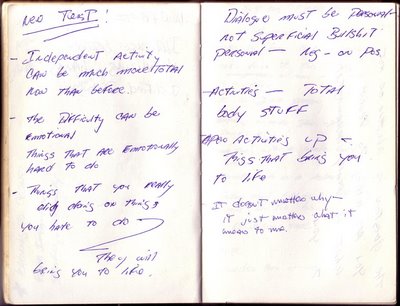 NEO TEXT!
- Independent Activity
can be much more total
now than before.
- the Difficulty can be
emotional
Things that are emotionally
hard to do
- Things that you really
dig doing or things
you hate to do
They will
bring you to life.
Dialogue must be personal -
not superficial Bullshit
personal - neg - or pos
- Activities - Total
body STUFF
open Activities up -
Things that bring you
to life
It doesn't matter why -
it just matters what it
means to me.